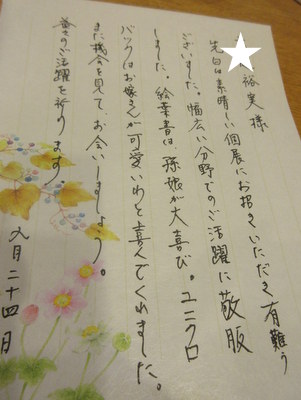 裕実様
先日は素晴しい個展にお招きいただき有難う
ございました。幅広い分野でのご活躍に敬服
しました。絵葉書は孫娘が大喜び。ユニクロ
バックはお嫁さんが可愛いわと喜んでくれました。
また機会を見て、お会いしましょう。
益々のご活躍を祈ります
九月二十四日